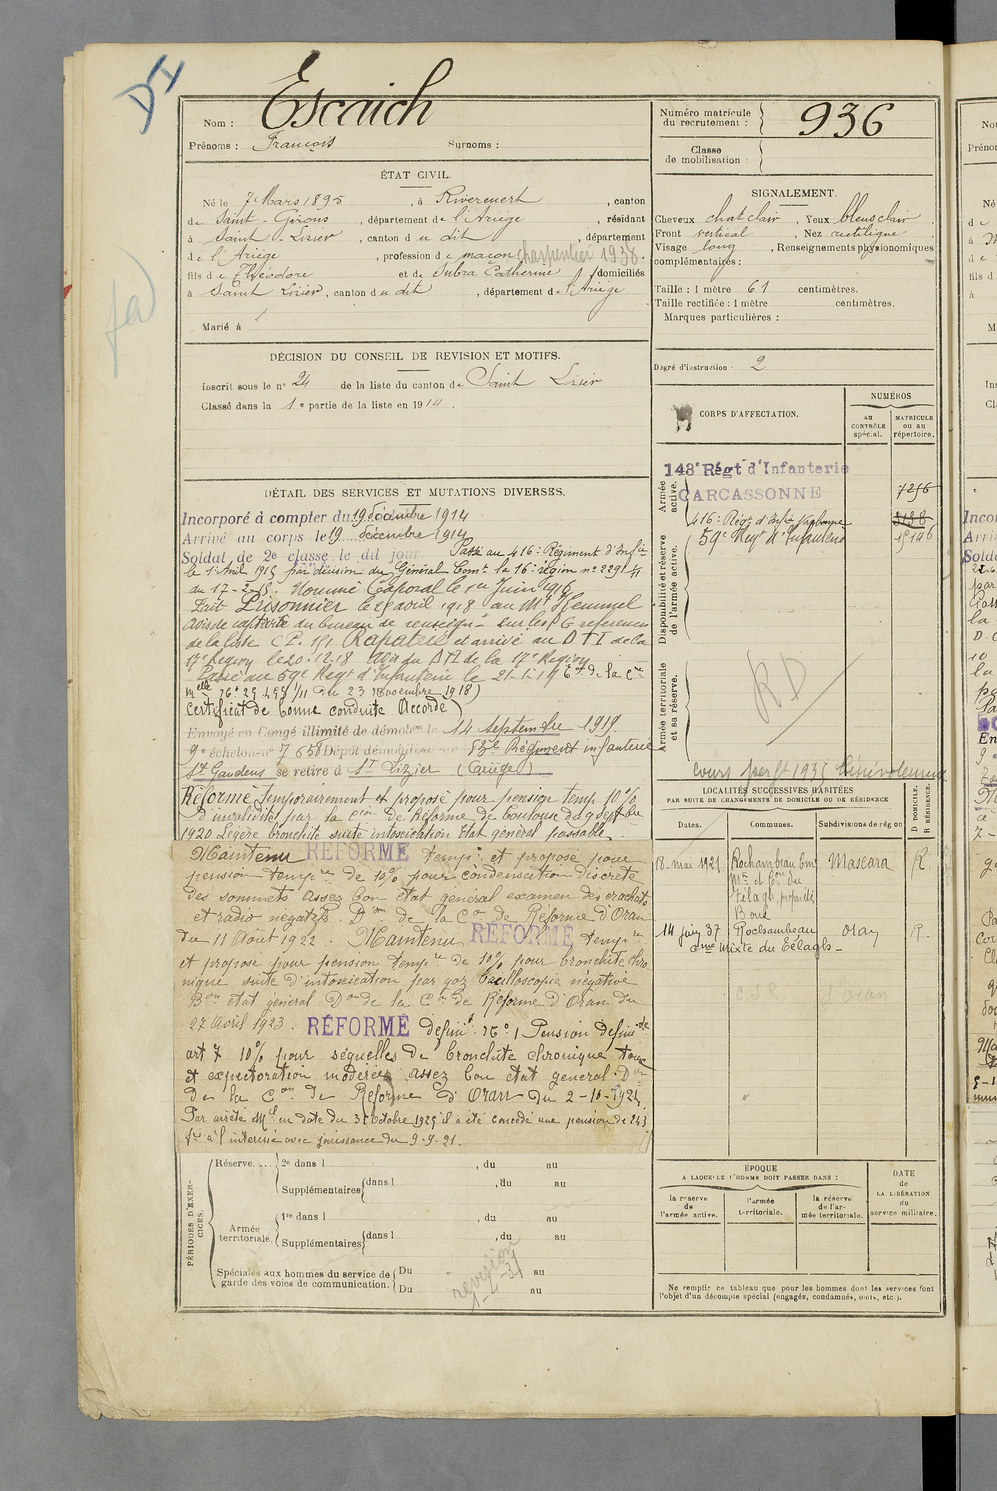 Nom : Escaich
Prénoms : François Surnoms :
Numéro matricule du recrutement : 936
Classe de mobilisation :
ÉTAT CIVIL.
Né le 7 Mars 1895, à Riverenert, canton
de Saint-Girons, département de l'Ariège, résidant
à Saint-Lizier, canton du dit, département
de l'Ariège, profession de maçon charpentier 1938.
fils de Théodore et de Subra Catherine domiciliés
à Saint Lizier, canton du dit, département de l'Ariège
Marié à
SIGNALEMENT.
Cheveux chat clair. Yeux bleus clair
Front vertical. Nez rectiligne
Visage long, Renseignements physionomiques
complémentaires :
Taille : 1 mètre 61 centimètres.
Taille rectifiée : 1 mètre centimètres.
Marques particulières :
DÉCISION DU CONSEIL DE REVISION ET MOTIFS.
Inscrit sous le n° 24 de la liste du canton de Saint Lizier
Classé dans la 1e partie de la liste en 1914.
Degré d'instruction : 2
CORPS D'AFFECTATION.
NUMÉROS
au contrôle spécial.
MATRICULE ou au répertoire.
Armée active.
143e Régt d'Infanterie
CARCASSONNE
7256
416e Régt d'Infie
3138
59e Régt d'Infanterie
15146
Disponibilité et réserve de l'armée active.
Armée territoriale et sa réserve.
RD
DÉTAIL DES SERVICES ET MUTATIONS DIVERSES.
Incorporé à compter du 19 décembre 1914
Arrivé au corps le 19 décembre 1914
Soldat de 2e classe le dit jour Passé au 416e Régiment d'Infie
le 1er Avril 1915 par décision du Général Comt la 16e région n° 2291
du 17-2-15. Nommé Caporal le 1er Juin 1916
Fait Prisonnier le 25 avril 1918 au Mt Kemmel
Avis de capture du bureau de renseignts sur les P.G reference
de la liste C.P. 151 Rapatrié et arrivé au D T I de la
17e Region le 20-12-18 avis du DTI de la 17e Region
Passé au 59e Regt d'Infanterie le 21-1-19
23 Novembre 1918)
Certificat de bonne conduite Accordé
Envoyé en Congé illimité de démobon le 14 septembre 1919
9e échelon n° 7658 Dépôt démobilisateur 83e Régiment infanterie
St Gaudens se retire à St Lizier (Ariège)
Réformé temporairement et proposé pour pension temp 10%
d'invalidité par la Con de Réforme de Toulouse du 9 Septbre
1920 Légère bronchite suite intoxication Etat général passable.
Maintenu RÉFORMÉ tempre et proposé pour
pension tempre de 10% pour condensation discrète
des sommets assez bon état général examen des crachats
et radio négatifs. Don de la Con de Réforme d'Oran
du 11 Août 1922. Maintenu RÉFORMÉ tempre
et proposé pour pension tempre de 10% pour bronchite chro
nique suite d'intoxication par gaz bacilloscopie négative
Bon état général Don de la Con de Réforme d'Oran du
27 Avril 1923. RÉFORMÉ définif N° 1 Pension définitive
art 7 10% pour séquelles de bronchite chronique toux
et expectoration modérées assez bon état général. Don
de la Con de Réforme d'Oran du 2-10-1924
Par arrêté Mel en date du 31 Octobre 1925 il a été concédé une pension de 243
frs à l'intéressé avec jouissance du 9-9-21.
Cours perft 1935 bénévolement
LOCALITÉS SUCCESSIVES HABITÉES
PAR SUITE DE CHANGEMENTS DE DOMICILE OU DE RÉSIDENCE
D DOMICILE. R RÉSIDENCE.
Dates. Communes. Subdivisions de région
18 mai 1921 Rochambeau Mascara R.
Télagh
14 juin 37 Rochambeau Oran R.
Cne Mixte du Télagh
d'Oran
PÉRIODES D'EXERCICES.
Réserve.... 2e dans l , du au
Supplémentaires dans l , du au
Armée territoriale. 1re dans l , du au
Supplémentaires dans l , du au
Spéciales aux hommes du service de garde des voies de communication. Du au
Du au
revision
ÉPOQUE
A LAQUELLE L'HOMME DOIT PASSER DANS :
la réserve de l'armée active.
l'armée territoriale.
la réserve de l'armée territoriale.
DATE de LA LIBÉRATION du service militaire.
Ne remplir ce tableau que pour les hommes dont les services font
l'objet d'un décompte spécial (engagés, condamnés, omis, etc.).